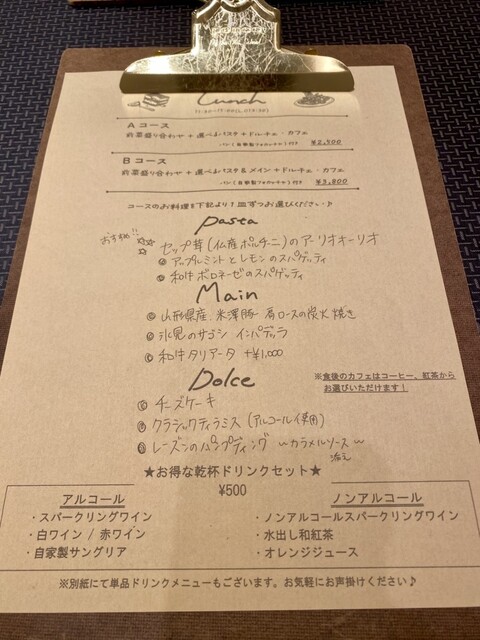 Lunch
Aコース
前菜盛り合わせ + 選べるパスタ + ドルチェ・カフェ
パン(自家製フォカッチャ)付き ¥2,500
Bコース
前菜盛り合わせ + 選べるパスタ & メイン + ドルチェ・カフェ
パン(自家製フォカッチャ)付き ¥3,800
コースのお料理を下記より1皿ずつお選びください♪
Pasta
おすすめ!!
☆☆ セップ茸(仏産ポルチーニ)のアーリオオーリオ
◎ アップルミントとレモンのスパゲッティ
◎ 和牛ボロネーゼのスパゲッティ
Main
◎ 山形県産 米澤豚 肩ロースの炭火焼き
◎ 氷見のサゴシ インパデッラ
◎ 和牛タリアータ +¥1,000
Dolce
※食後のカフェはコーヒー、紅茶から
お選びいただけます!
◎ チーズケーキ
◎ クラシックティラミス (アルコール使用)
◎ レーズンのパンプディング 〜カラメルソース〜
添え
★お得な乾杯ドリンクセット★
¥500
アルコール
・スパークリングワイン
・白ワイン / 赤ワイン
・自家製サングリア
ノンアルコール
・ノンアルコールスパークリングワイン
・水出し和紅茶
・オレンジジュース
※別紙にて単品ドリンクメニューもございます。お気軽にお声掛けください♪